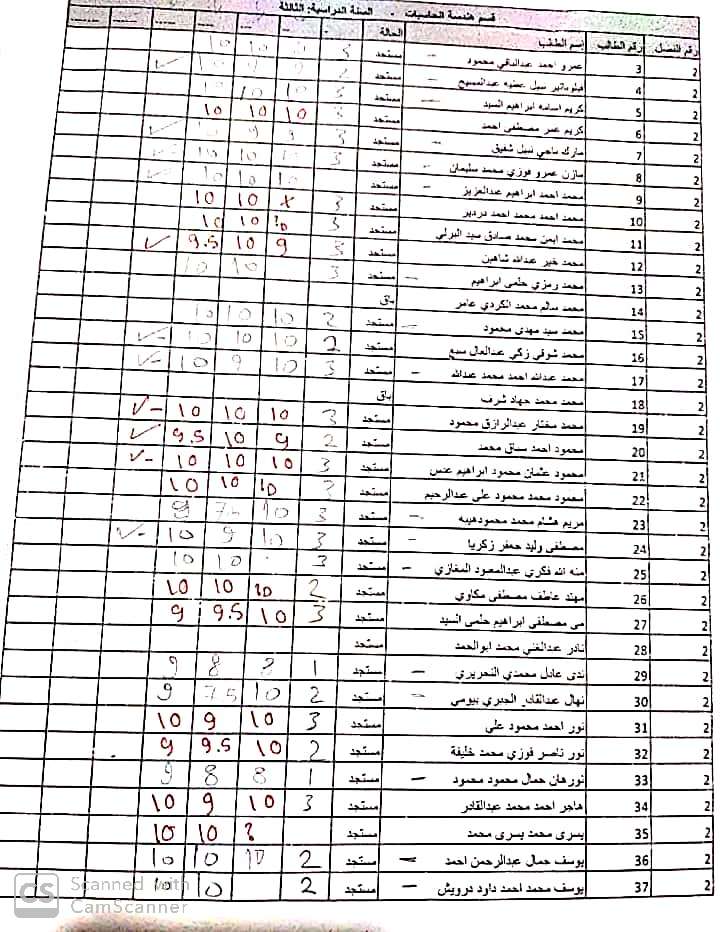 قسم هندسة الحاسبات - السنة الدراسية: الثالثة
رقم الفصل رقم الطالب إسم الطالب الحالة
2 3 عمرو احمد عبدالباقي محمود مستجد
2 4 عطيه عبدالمسيح مستجد
2 5 كريم اسامه ابراهيم السيد مستجد
2 6 كريم عمر مصطفى احمد مستجد 10 10 10
2 7 مارك ناجي نبيل شفيق مستجد 3
2 8 مازن عمرو فوزي محمد سليمان مستجد 3 10 10
2 9 محمد احمد ابراهيم عبدالعزيز مستجد 10 10 10
2 10 محمد احمد محمد احمد دردير مستجد 3 x 10 10
2 11 محمد ايمن محمد صادق سيد مستجد 3 10 10
2 12 محمد خير عبدالله شاهين مستجد 3 9 10 9.5 ✓
2 13 محمد رمزي حلمى ابراهيم مستجد 3 10 10
2 14 محمد سالم محمد الكردي عامر باق
2 15 محمد سيد مهدى محمود مستجد 2 10 10 10
2 16 محمد شوقى زكي عبدالعال سبع مستجد 2 10 10 10 ✓-
2 17 محمد عبدالله احمد محمد عبدالله مستجد 3 10 9 10 ✓-
2 18 محمد محمد جهاد شرف باق
2 19 محمد مختار عبدالرازق محمود مستجد 3 10 10 10 ✓-
2 20 محمود احمد محمد مستجد 2 9 10 9.5 ✓
2 21 محمود عثمان محمود ابراهيم مستجد 3 10 10 10 ✓-
2 22 محمود محمد محمود على عبدالرحيم مستجد 3 10 10 10
2 23 مريم هشام محمد مستجد 3 10 7.5
2 24 مصطفى وليد جعفر زكريا مستجد 3 10 9 10 ✓-
2 25 منه الله فكري عبدالمعبود المغازي مستجد 3 10 10
2 26 مهند عاطف مصطفى مكاوي مستجد 2 10 10 10
2 27 مى مصطفى ابراهيم حلمى السيد مستجد 3 10 9.5 9
2 28 نادر عبدالغني محمد ابوالحمد مستجد
2 29 ندى عادل محمدي النحريري مستجد 1 8 9
2 30 نهال عبدالقادر بيومي مستجد 2 10 7.5 9
2 31 نور احمد محمود علي مستجد 3 10 9 10
2 32 نور ناصر فوزي محمد خليفة مستجد 2 10 9.5 9
2 33 نورهان جمال محمود محمود مستجد 1 8 8 9
2 34 هاجر احمد محمد عبدالقادر مستجد 3 10 9 10
2 35 يسرى محمد يسرى محمد مستجد ? 10 10
2 36 يوسف جمال عبدالرحمن احمد مستجد 2 10 10 10
2 37 يوسف محمد احمد داود درويش مستجد 2 10 10
CS Scanned with
CamScanner